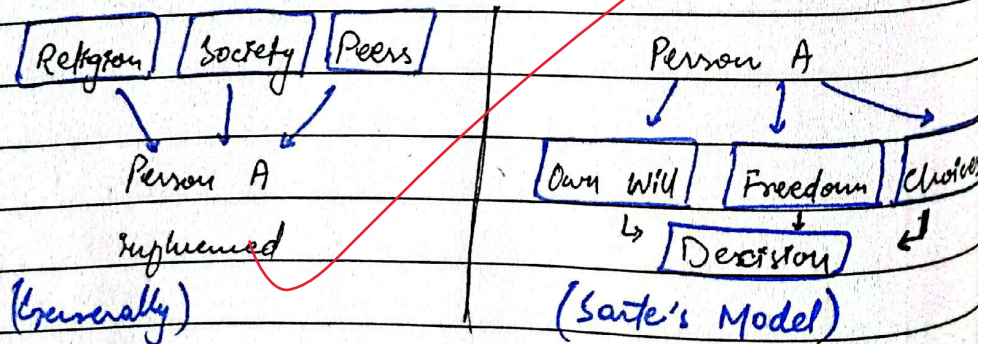 Religion Society Peers
Person A
influenced
(Generally)
Person A
Own Will Freedom Choices
Descision
(Sarte's Model)